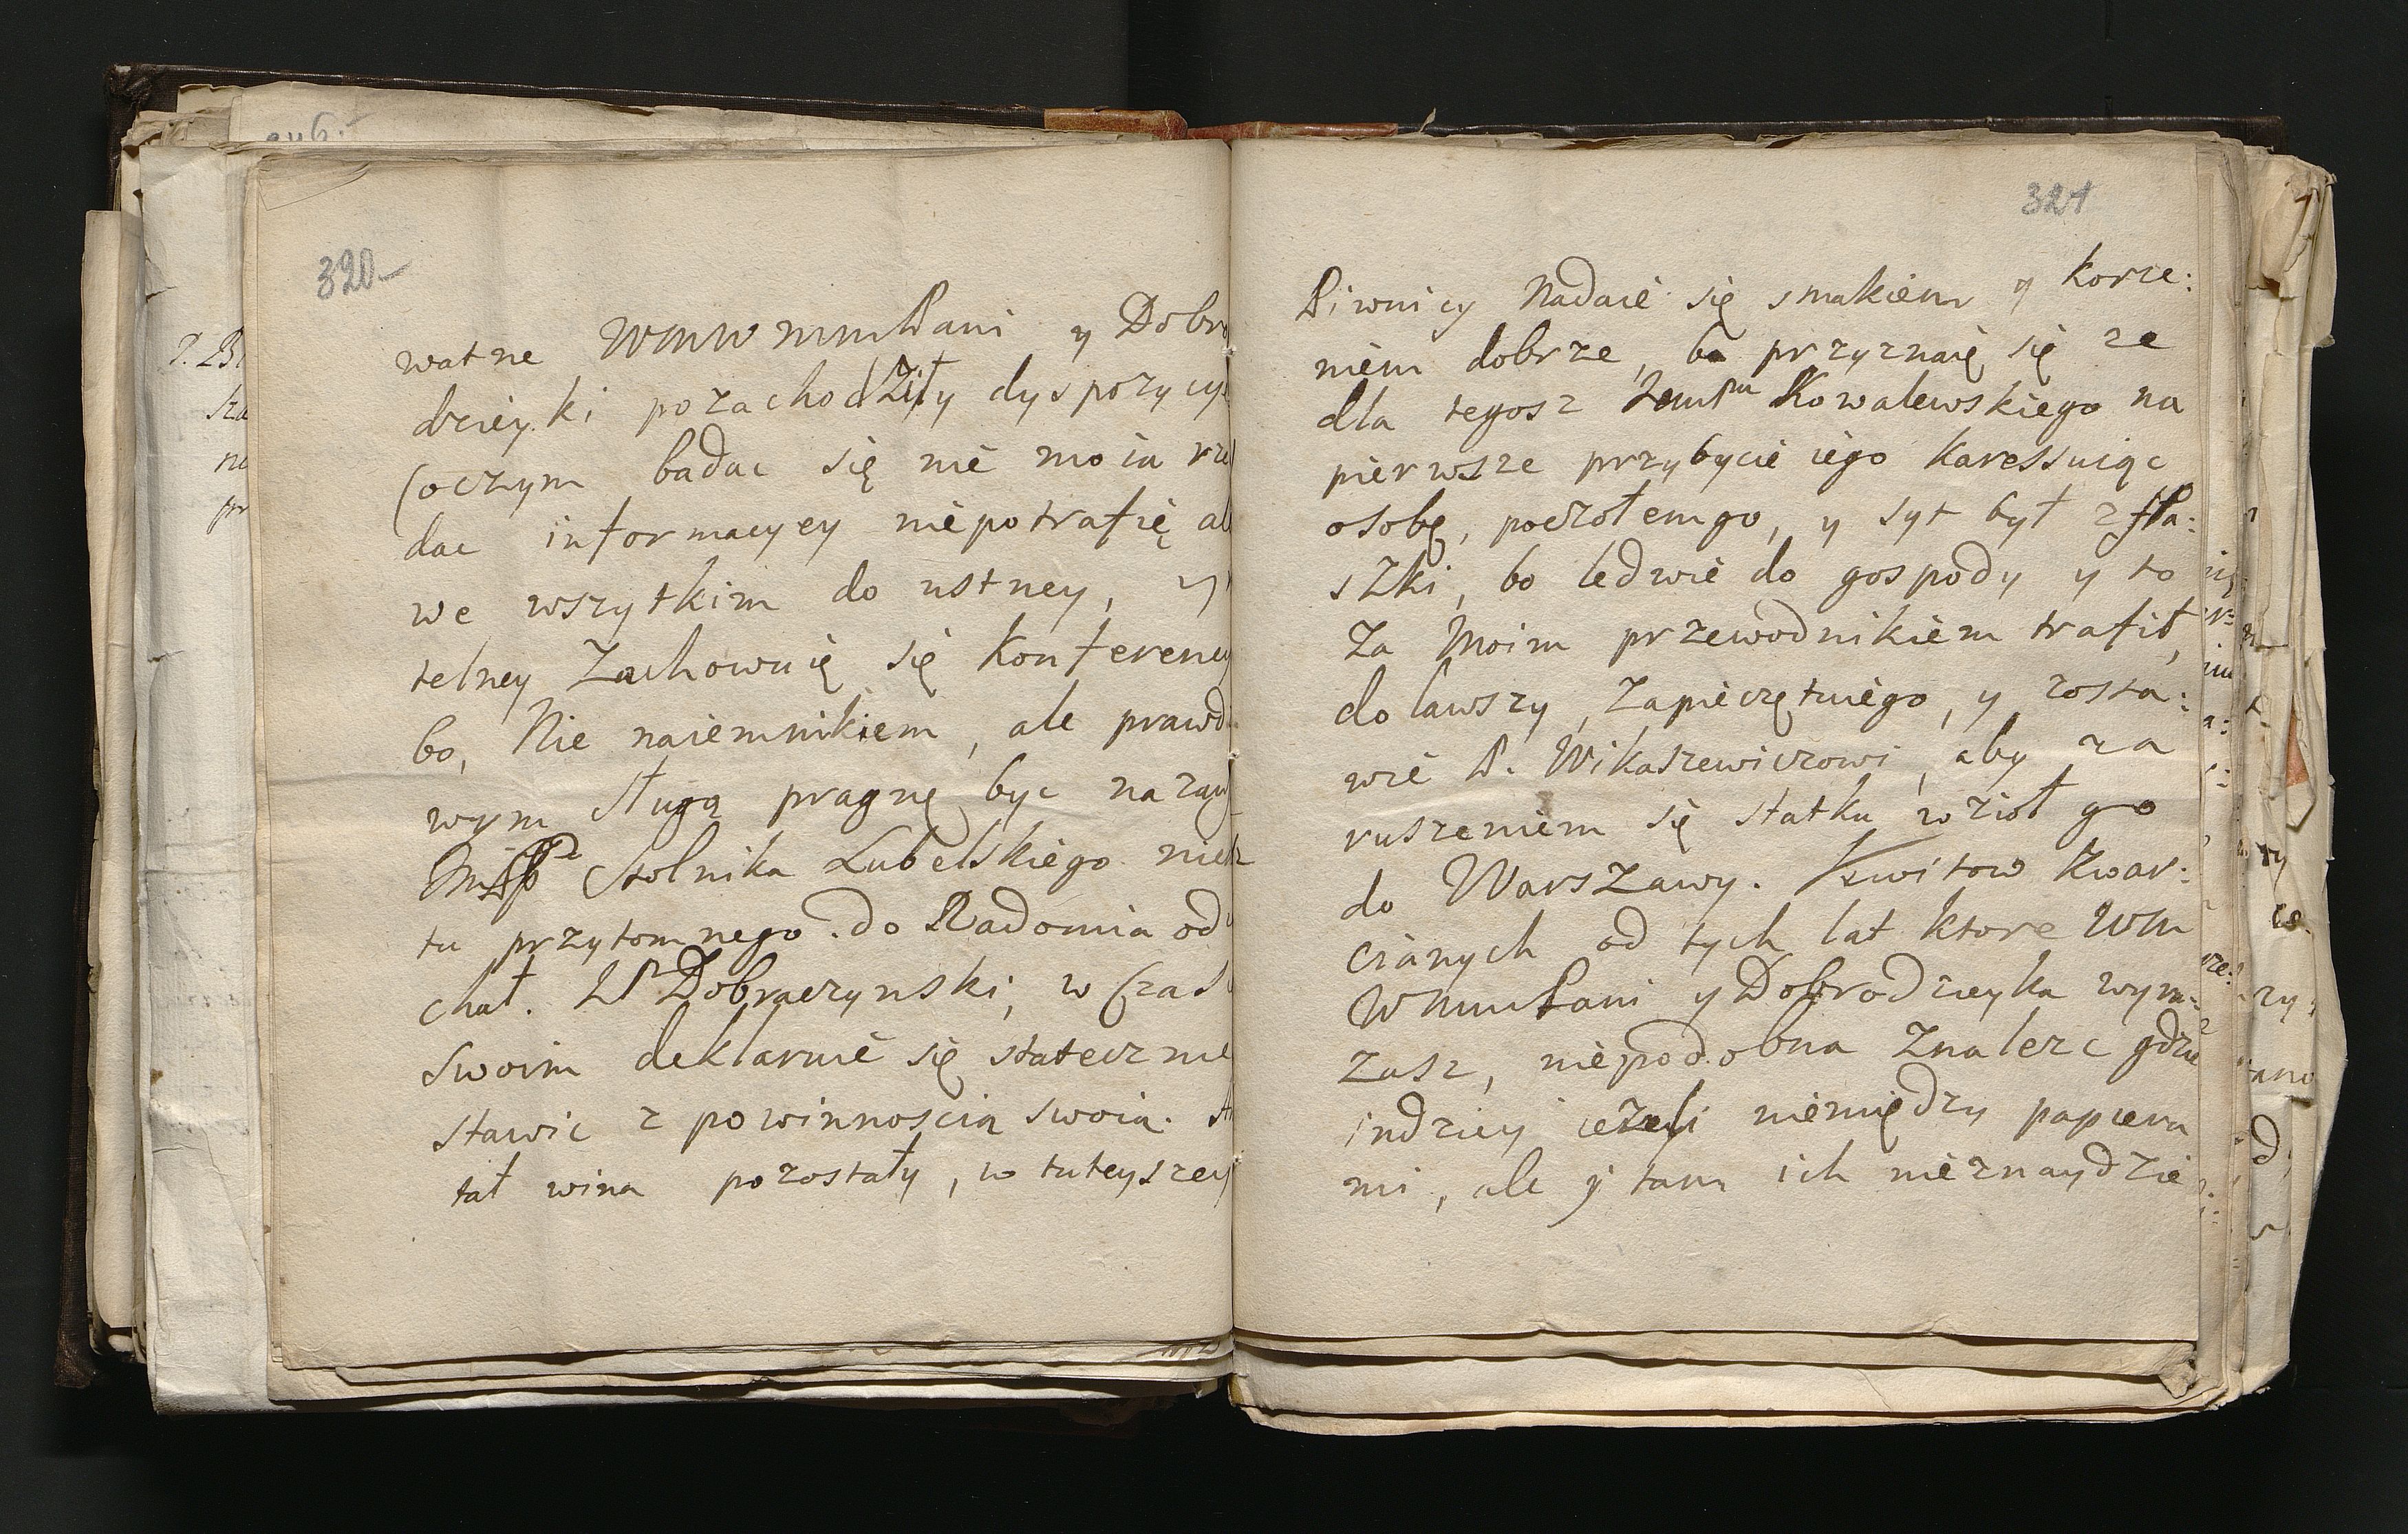 320
watne WMWMMPani y Dobro
dzieyki pozachodziły dyspozycye
(o czym badac się nie moia rze
dac informacyey niepotrafię al
we wszytkim do ustney, y
telney Zachowuię się Konferency
bo, Nie naiemnikiem, ale prawd
wym sługą pragnę byc na zaw
Stolnika Lubelskiego nie
tu przytomnego do Radomia od
chał. Dobraczynski, w czas
swoim deklaruie się statecznie
stawic z powinnoscią swoią. A
tał wina pozostały, w tuteyszey
321
Piwnicy Nadaie się smakiem y korze:
niem dobrze, bo przyznaię się ze
dla tegosz Kowalewskiego na
pierwsze przybycie iego karessuiąc
osobę, poczołemgo, y syt był z fla:
szki, bo ledwie do gospody y to
Za Moim przewodnikiem trafił,
dolawszy, Zapieczętuiego, y zosta:
wie P. Wikaszewiczowi, aby za
ruszeniem się statku wzioł go
do Warszawy. Kwitow Kwar:
cianych od tych lat ktore WM
WMMPani y Dobrodzieyka wym:
zasz, niepodobna Znalezc gdzie
indziey iezeli niemiędzy papiera
mi, ale y tam ich nieznaydzie